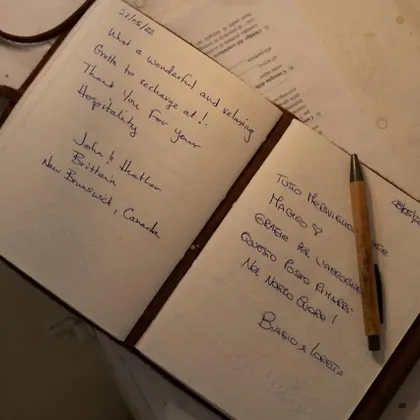 27/05/22
What a wonderful and relaxing
Grotto to recharge at!!
Thank You For Your
Hospitality
John & Heather
Brittain
New Brunswick, Canada
TUTTO MERAVIGLIOSO
MAGICO ♡
GRAZIE PER L'ACCOGLIENZA
QUESTO POSTO RIMARRÀ
NEL NOSTRO CUORE!
BIAGIO &